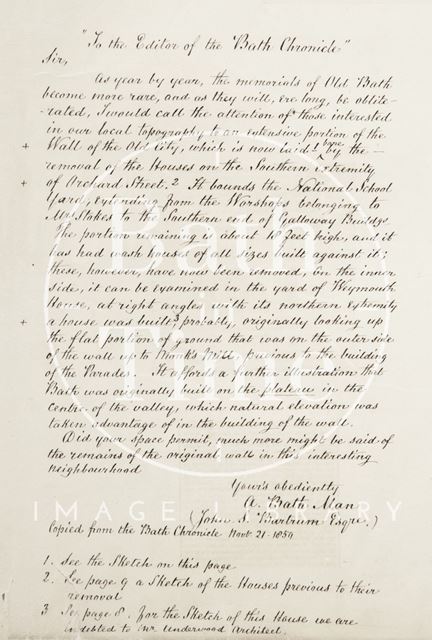 "To the Editor of the "Bath Chronicle"
Sir,
As year by year, the memorials of Old Bath
become more rare, and as they will, ere long, be oblite-
-rated, I would call the attention of those interested
in our local topography to an extensive portion of the
+ Wall of the Old City, which is now laid 1 bare by the
removal of the Houses on the Southern extremity
+ of Orchard Street. 2 It bounds the National School
Yard, extending from the Worshops belonging to
Mr Stokes to the Southern end of Galloway Buildgs.
The portion remaining is about 18 feet high, and it
has had wash houses of all sizes built against it;
these, however, have now been removed, On the inner
side, it can be examined in the yard of Weymouth
House, at right angles with its northern extremity
+ a house was built, 3 probably, originally looking up
the flat portion of ground that was on the outer side
of the wall up to Monk's Mill, previous to the building
of the Parades. It affords a further illustration that
Bath was originally built on the plateau in the
centre of the valley, which natural elevation was
taken advantage of in the building of the wall.
Did your space permit, much more might be said of
the remains of the original wall in this interesting
neighbourhood
Your's obediently
A. Bath Man
(John S. Bartrum Esqre.)
Copied from the Bath Chronicle Novr. 21. 1859
1. See the Sketch on this page
2. See page 9 a Sketch of the Houses previous to their
removal
3 See page 8. For the Sketch of this House we are
indebted to Mr Underwood Architect.
IMAGE LIBRARY